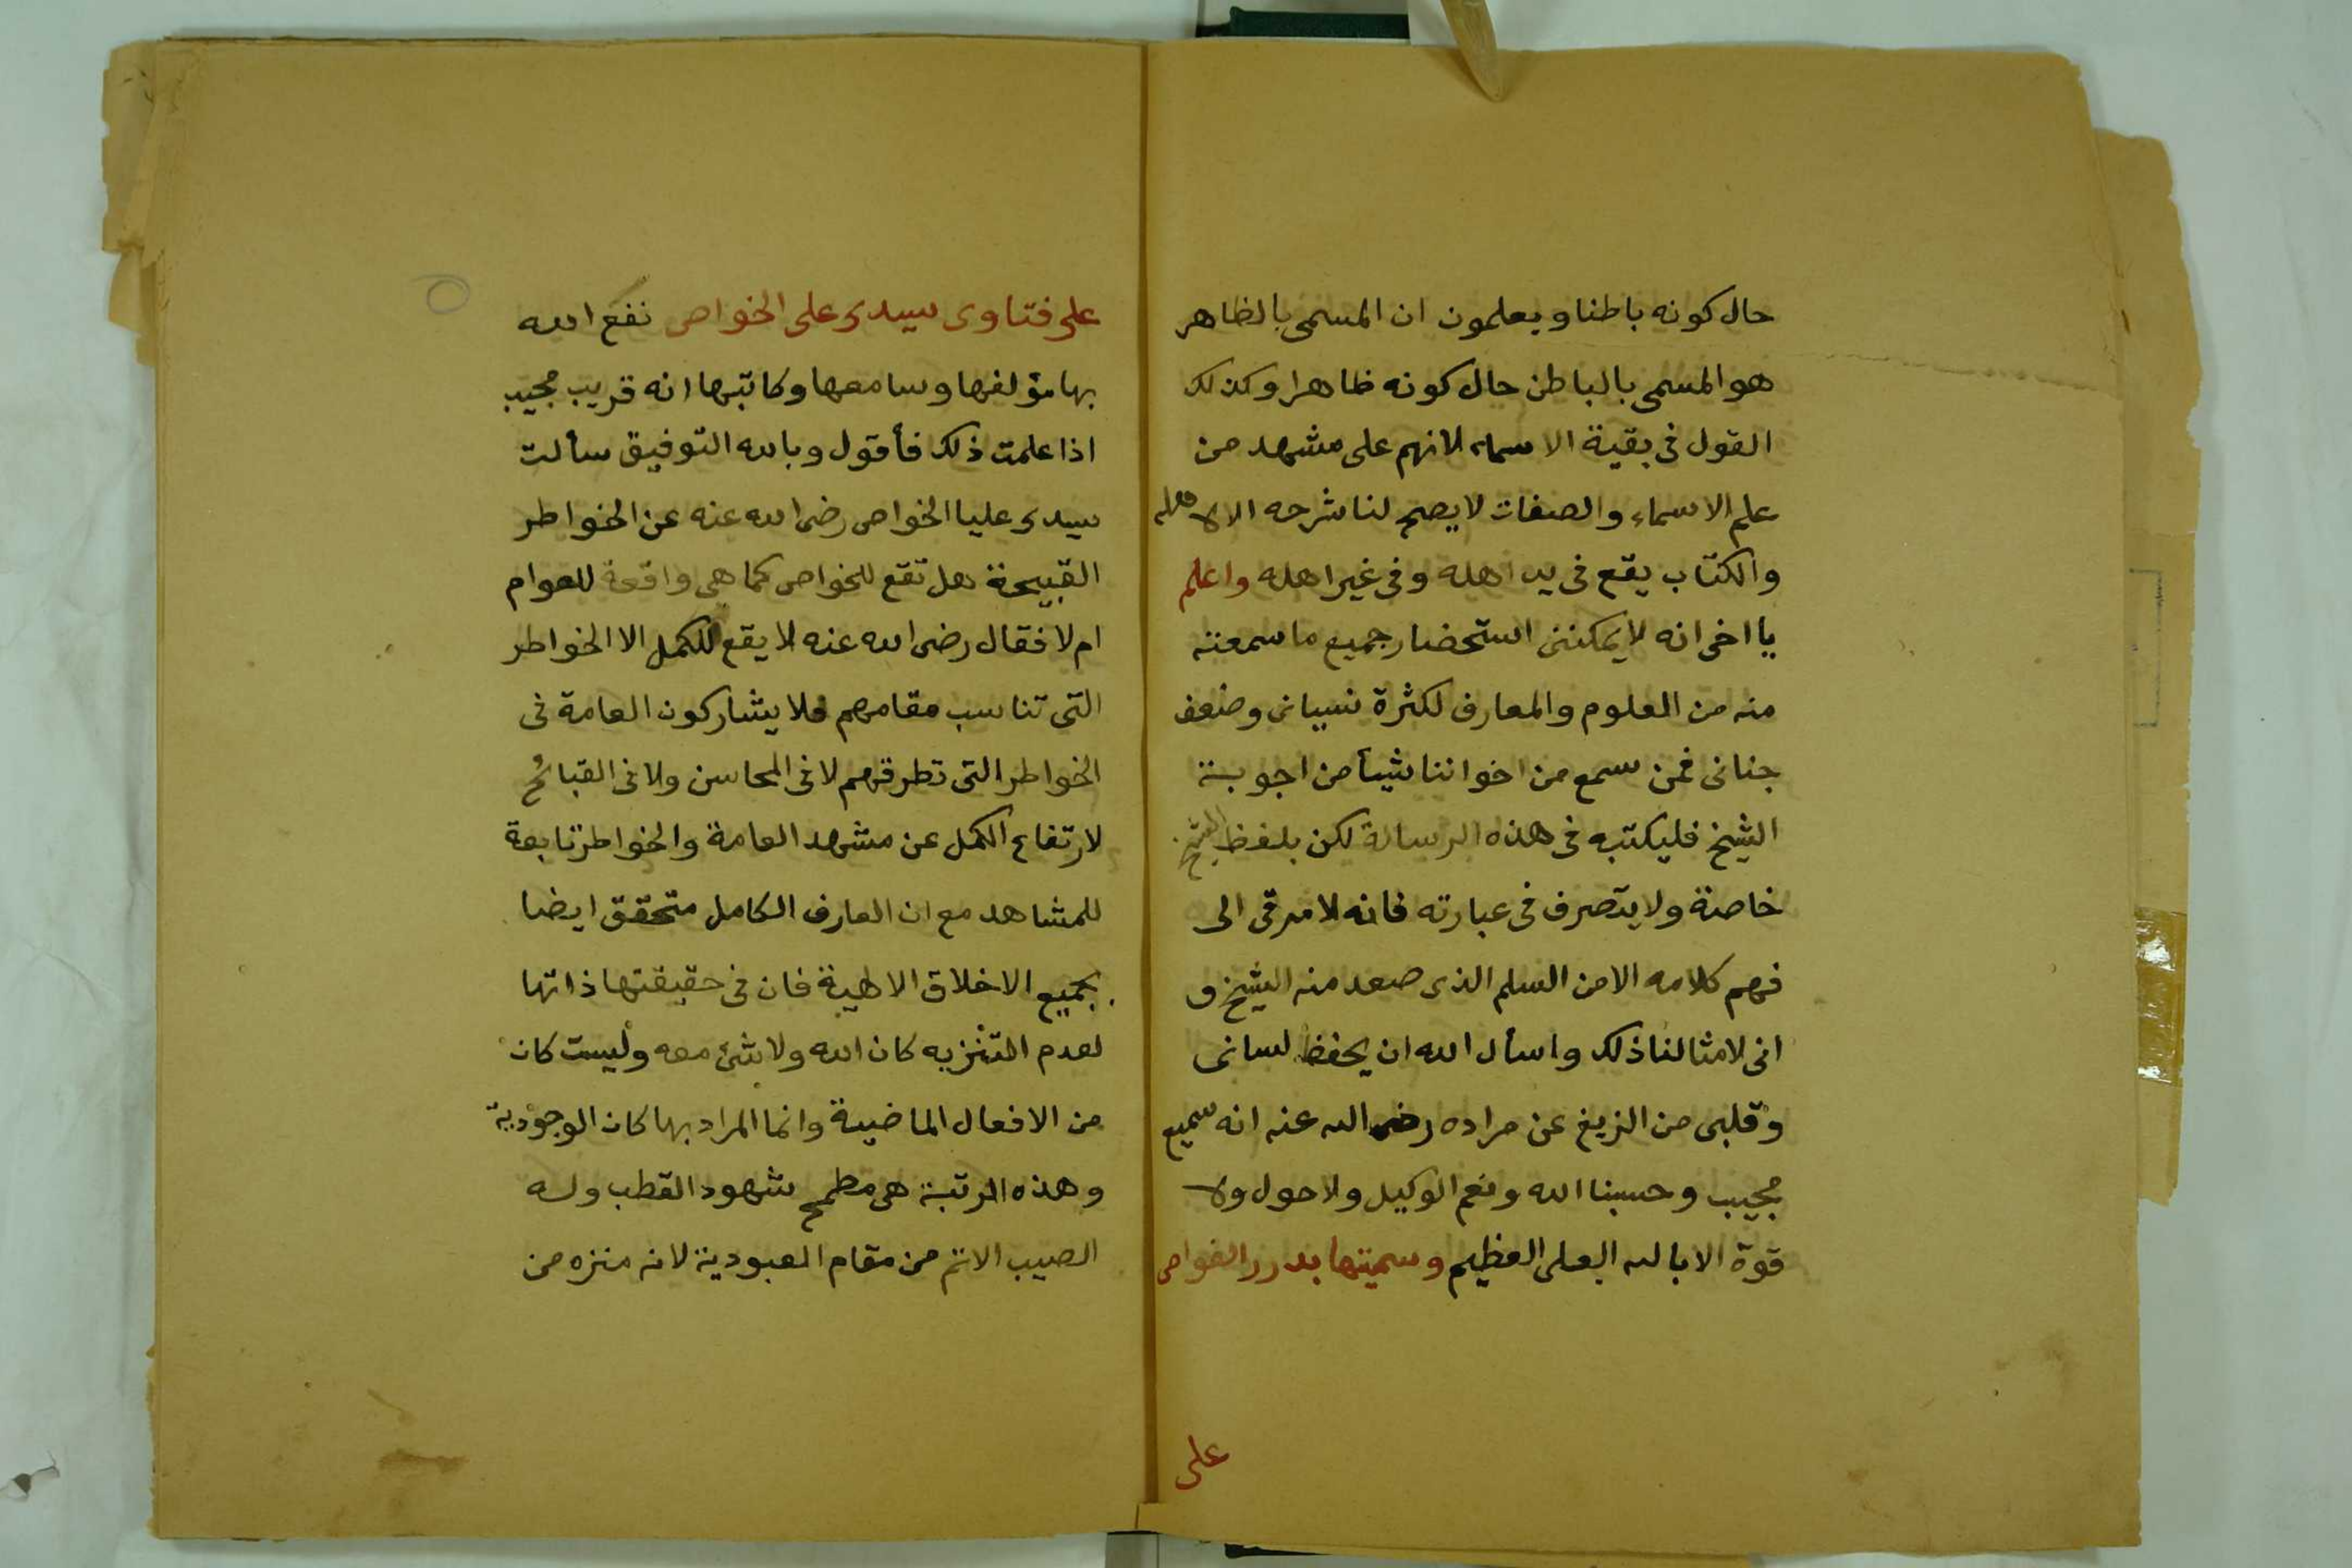 حال كونه باطنا ويعلمون ان المسمى بالظاهر
هو المسمى بالباطن حال كونه ظاهرا وكذلك
القول فى بقية الاسماء لانهم على مشهد من
علم الاسماء والصفات لا يصح لنا شرحه الا لاهله
والكتاب يقع فى يد اهله وفى غير اهله واعلم
يا اخى انه لا يمكننى استحضار جميع ما سمعته
منه من العلوم والمعارف لكثرة نسيانى وضعف
جنانى فمن سمع من اخواننا شيأ من اجوبة
الشيخ فليكتبه فى هذه الرسالة لكن بلفظ الشيخ
خاصة ولا يتصرف فى عبارته فانه لا مرقى الى
فهم كلامه الا من السلم الذى صعد منه الشيخ و
انى لامثالنا ذلك واسأل الله ان يحفظ لسانى
وقلبى من الزيغ عن مراده رضى الله عنه انه سميع
مجيب وحسبنا الله ونعم الوكيل ولا حول ولا
قوة الا بالله العلى العظيم وسميتها بدرر الغواص
على
على فتاوى سيدى على الخواص نفع الله
بها مؤلفها وسامعها وكاتبها انه قريب مجيب
اذا علمت ذلك فأقول وبالله التوفيق سألت
سيدى عليا الخواص رضى الله عنه عن الخواطر
القبيحة هل تقع للخواص كما هى واقعة للعوام
ام لا فقال رضى الله عنه لا يقع للكمل الا الخواطر
التى تناسب مقامهم فلا يشاركون العامة فى
الخواطر التى تطرقهم لا فى المحاسن ولا فى القبائح
لارتفاع الكمل عن مشهد العامة والخواطر تابعة
للمشاهد مع ان العارف الكامل متحقق ايضا
بجميع الاخلاق الالهية فان فى حقيقتها ذاتها
لعدم التنزيه كان الله ولا شئ معه وليست كان
من الافعال الماضية وانما المراد بها كان الوجودية
وهذه المرتبة هى مطمح شهود القطب وله
الصيب الاتم من مقام العبودية لانه منزه من